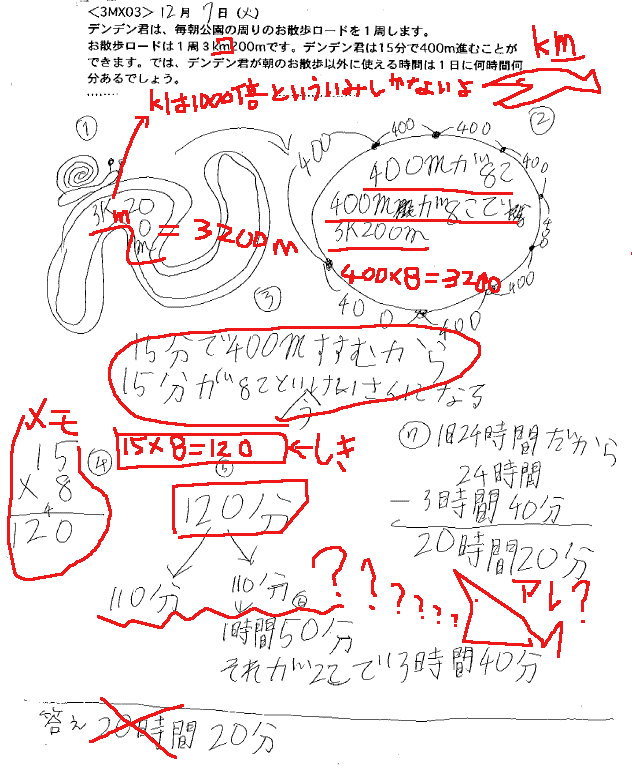 <3MX03> 12月 7日 (火)
デンデン君は、毎朝公園の周りのお散歩ロードを1周します。
お散歩ロードは1周3km200mです。デンデン君は15分で400m進むことが
できます。では、デンデン君が朝のお散歩以外に使える時間は1日に何時間何
分あるでしょう。
........
km
kは1000倍といういみしかないよ
①
②
400
400
400
400
400
400
40
0
400
400mが8こ
400mが8こで
3K200m
400×8=3200
3K20
0
m
m
= 3200m
③
15分で400mすすむから
15分が8こというけいさんになる
メモ
15
× 8
4
120
④
15×8=120
←しき
⑤
120分
110分
110分
⑥
1時間50分
それが2こで3時間40分
⑦ 1日24時間だから
24時間
- 3時間40分
20時間20分
??????
アレ?
答え 20時間 20分